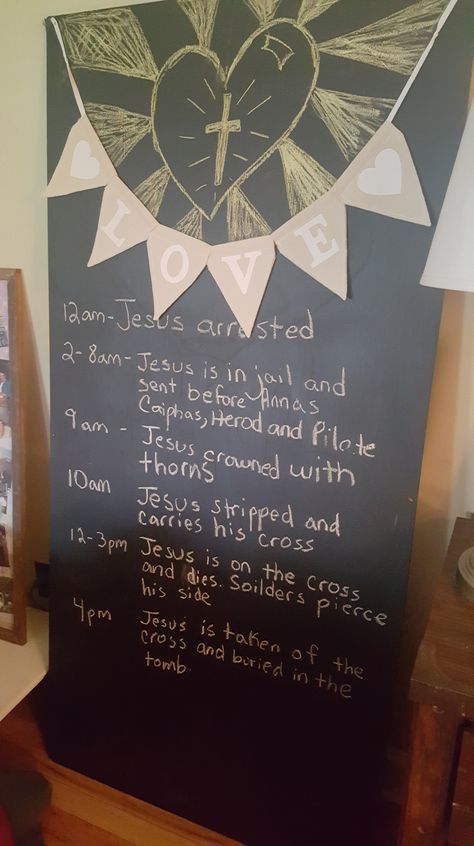 LOVE
12am-Jesus arrested
2-8am- Jesus is in jail and
sent before Annas
Caiphas, Herod and Pilote
9am - Jesus crowned with
thorns
10am Jesus stripped and
carries his cross
12-3pm Jesus is on the cross
and dies. Soilders pierce
his side
4pm Jesus is taken of the
cross and buried in the
tomb.